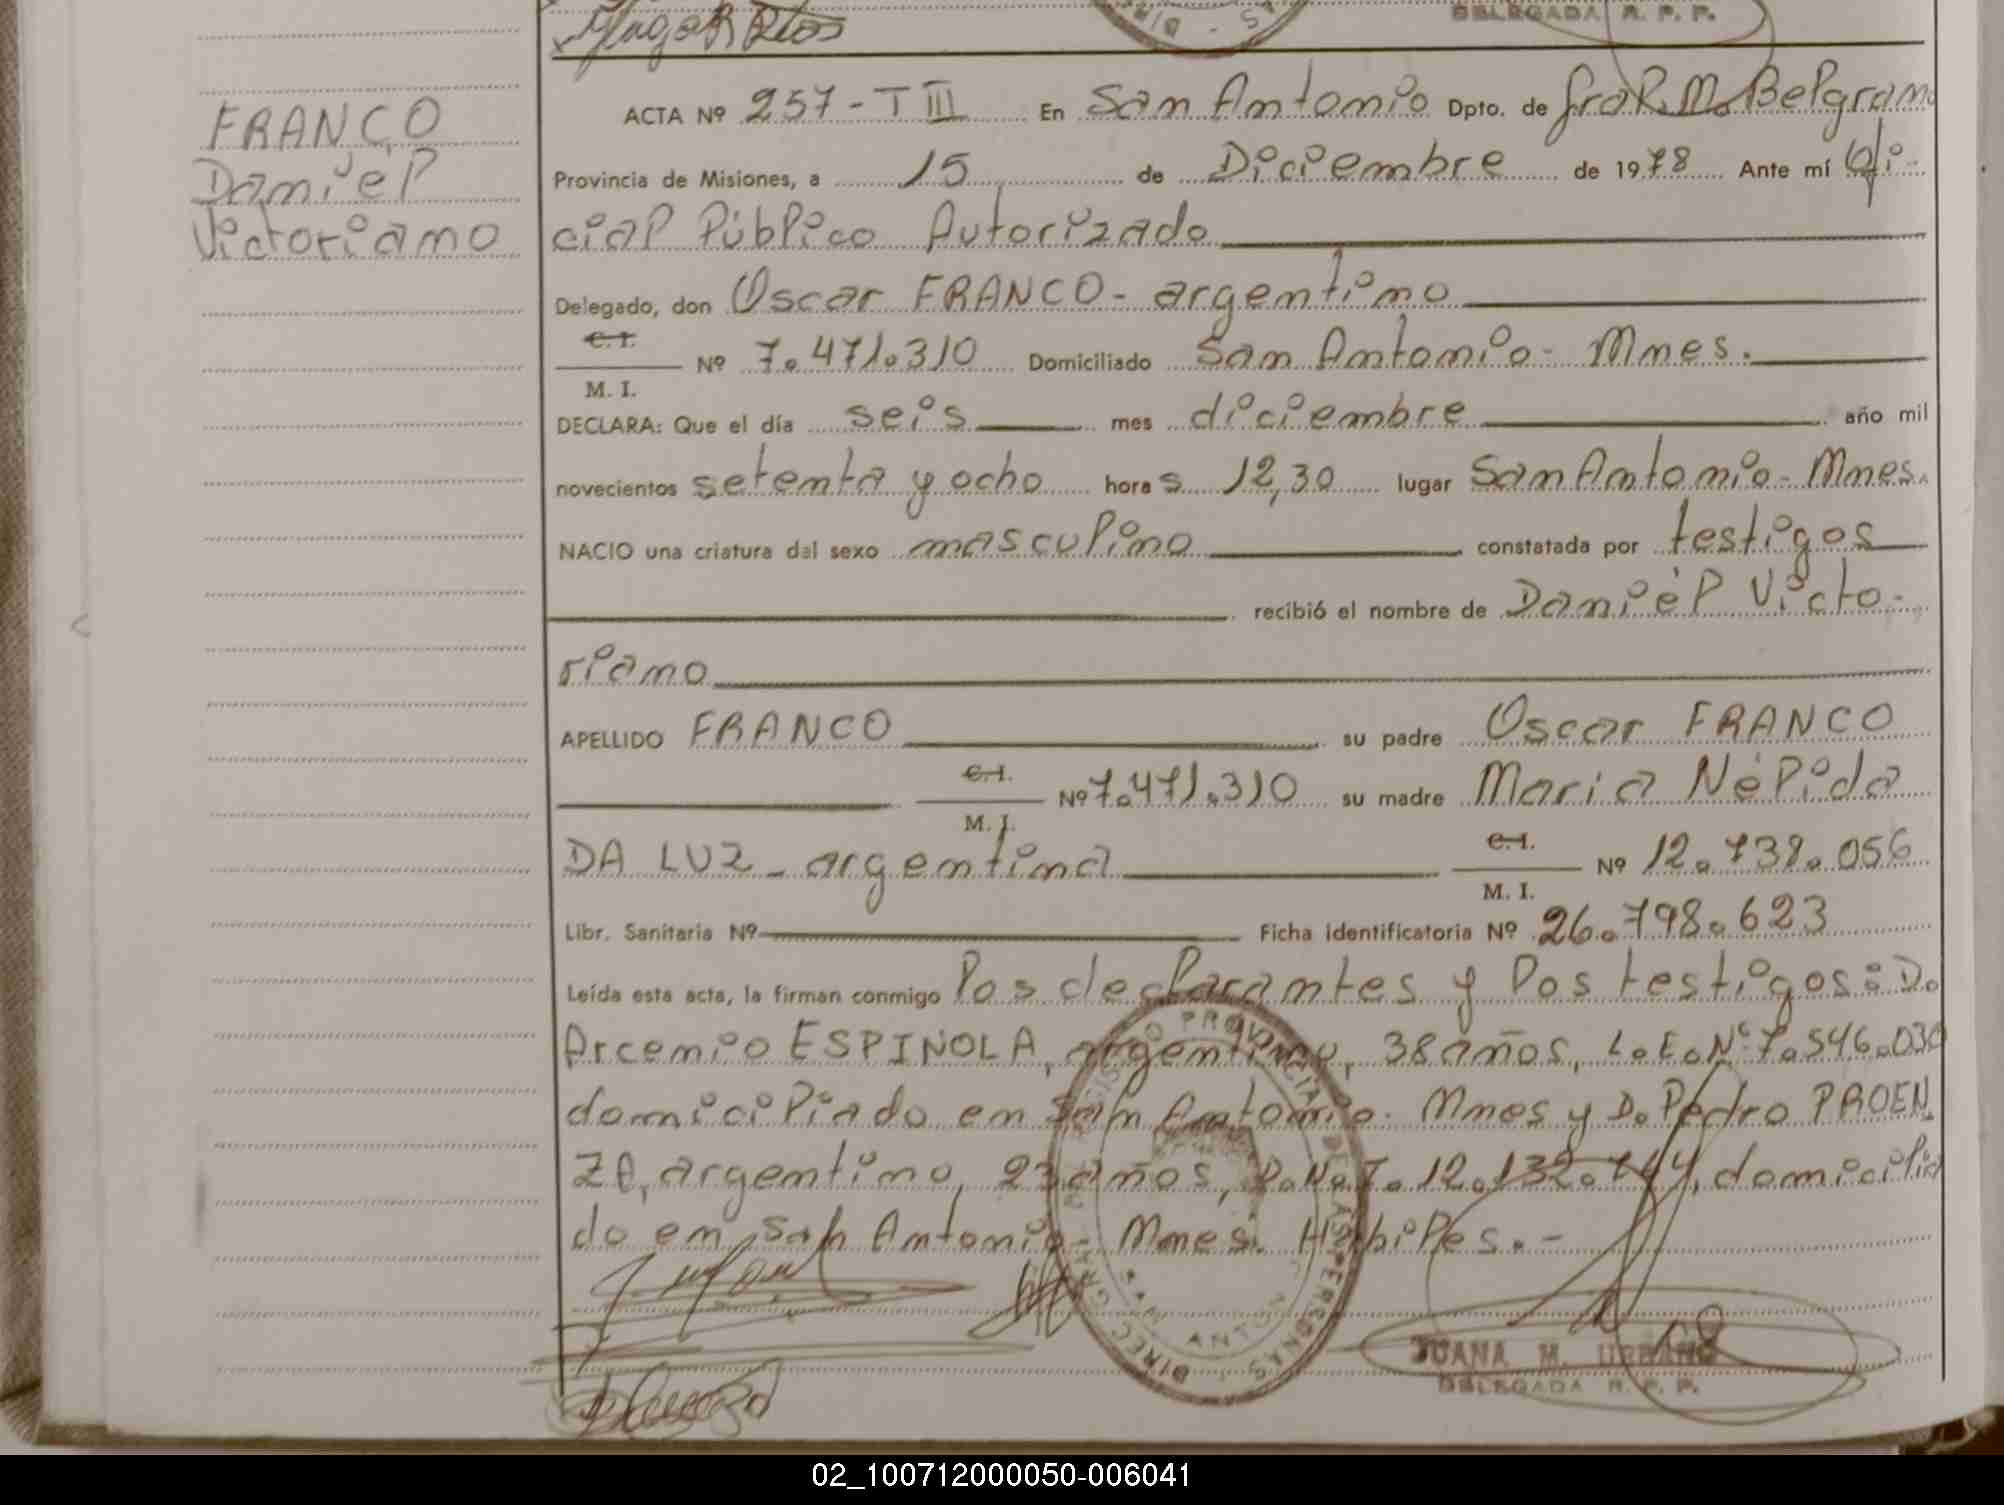 DELEGADA R. P. P.
ACTA Nº 257 - T III En San Antonio Dpto. de Gral. M. Belgrano
FRANCO
Daniel
Victoriano
Provincia de Misiones, a 15 de Diciembre de 1978 Ante mí Ofi-
cial Público Autorizado
Delegado, don Oscar FRANCO - argentino
C. I.
M. I. Nº 7.471.310 Domiciliado San Antonio - Mnes.
DECLARA: Que el día seis mes diciembre año mil
novecientos setenta y ocho horas 12,30 lugar San Antonio - Mnes.
NACIO una criatura del sexo masculino constatada por testigos
recibió el nombre de Daniel Victo-
riano
APELLIDO FRANCO su padre Oscar FRANCO
C. I.
M. I. Nº 7.471.310 su madre Maria Nélida
DA LUZ - argentina C. I.
M. I. Nº 12.738.056
Libr. Sanitaria Nº Ficha identificatoria Nº 26.798.623
Leída esta acta, la firman conmigo los declarantes y los testigos: D.
Arcenio ESPINOLA, argentino, 38 años, L.E.Nº 7.546.030
domiciliado en San Antonio - Mnes y D. Pedro PROEN
ZE, argentino, 23 años, D.N.I. 12.132. domicilia
do en San Antonio - Mnes. Hábiles. -
JUANA M. URBANO
DELEGADA R. P. P.
02_100712000050-006041